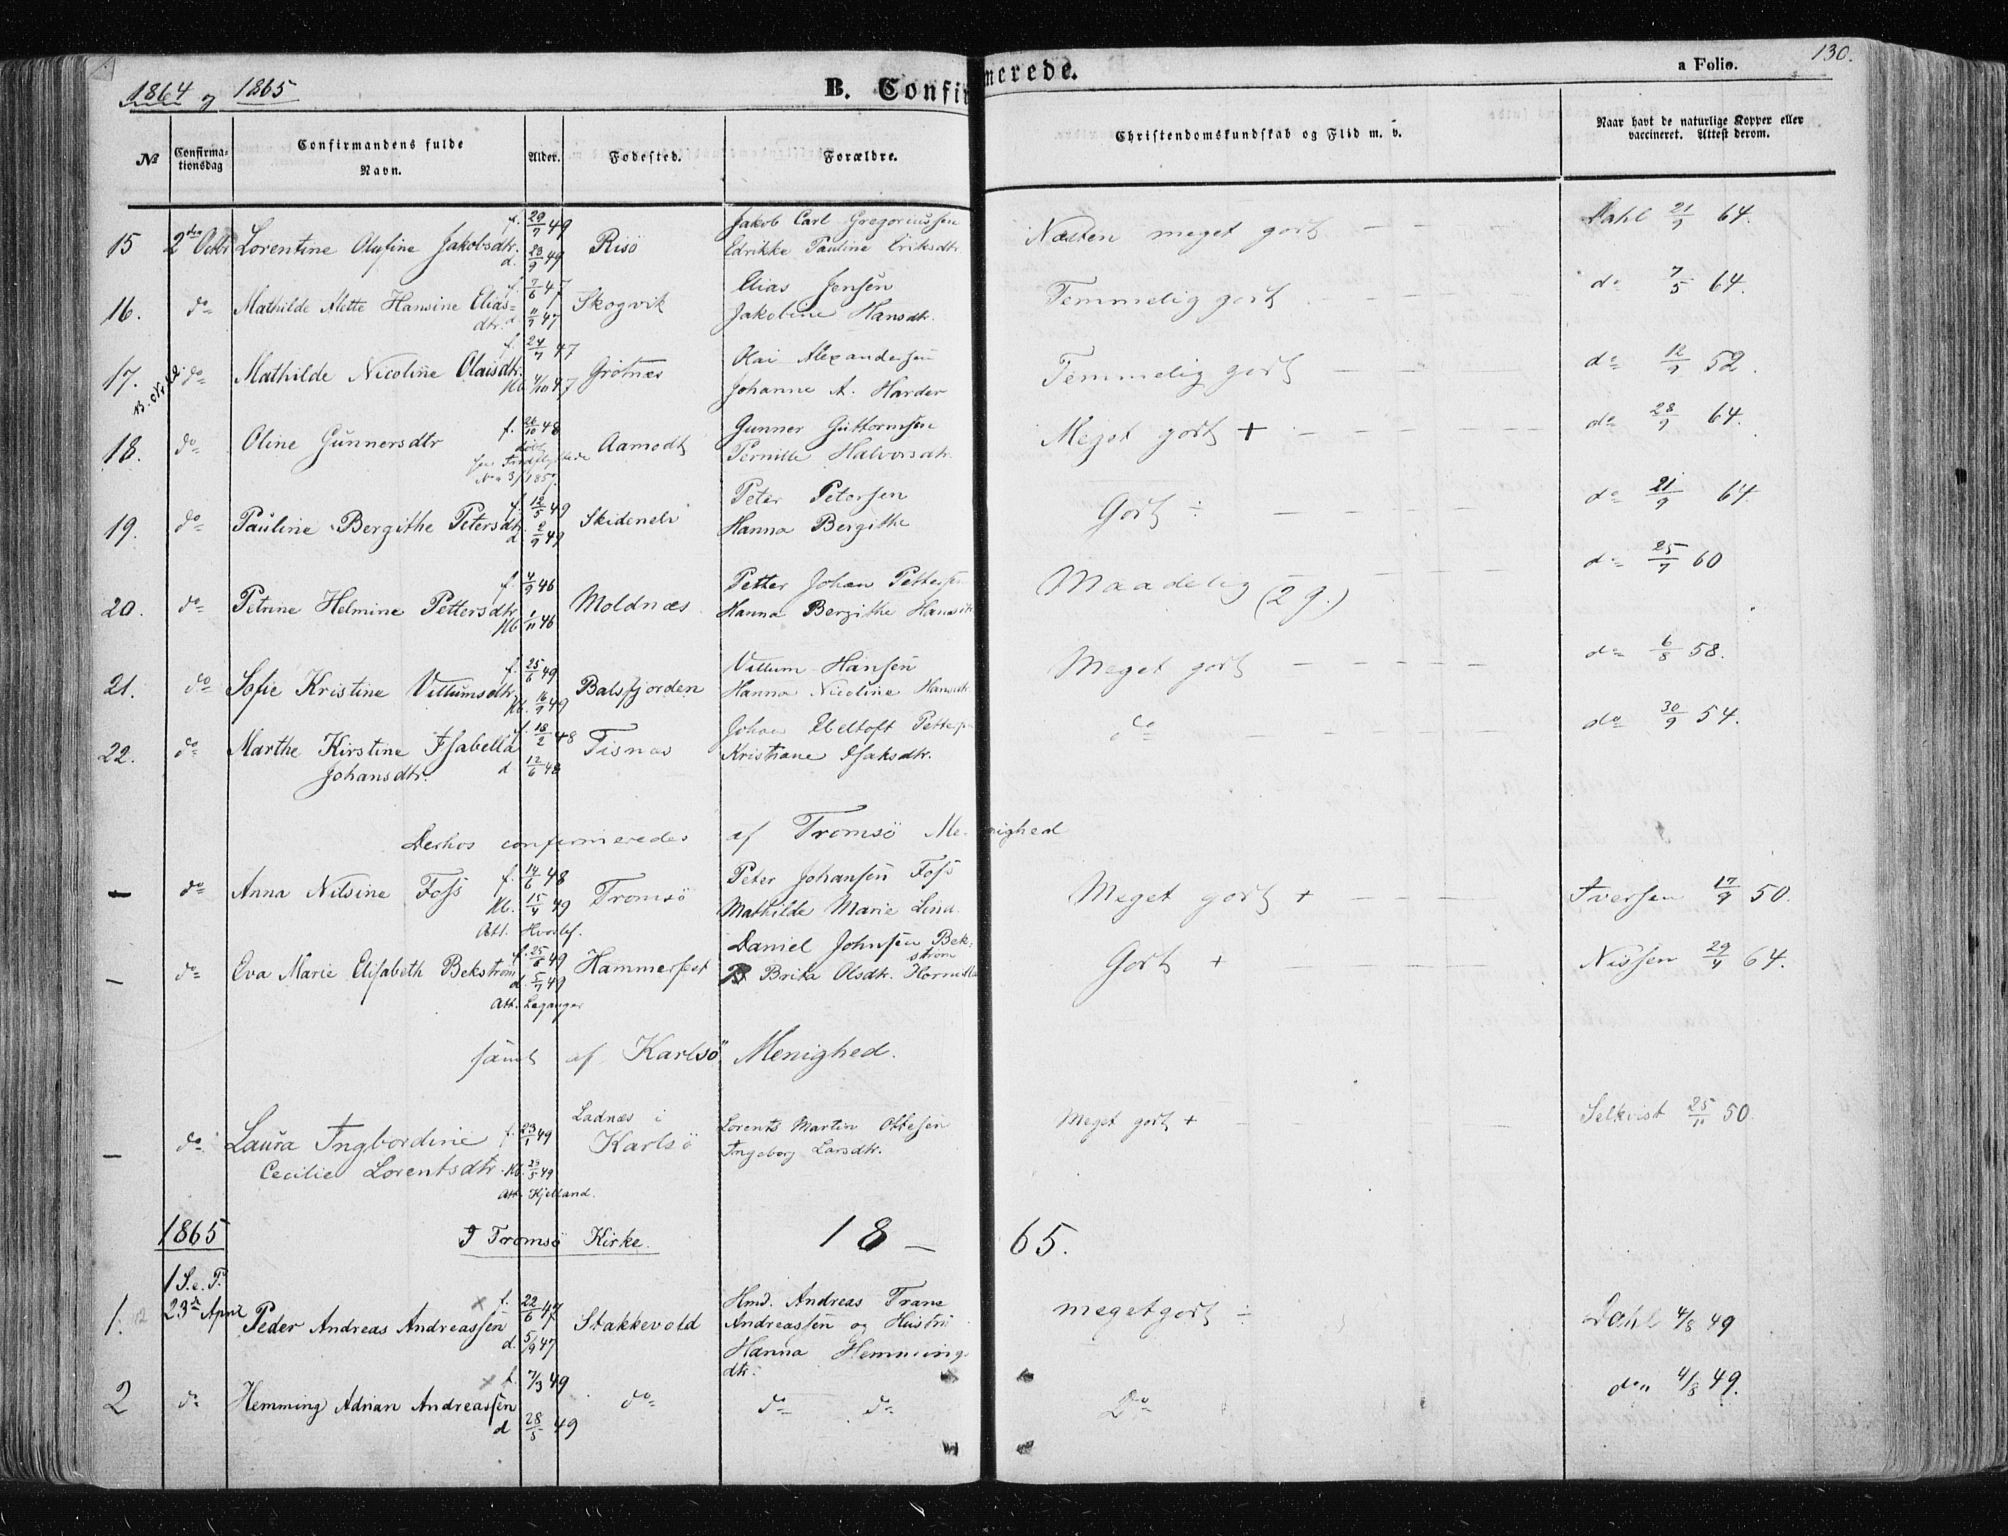 1864 og 1865
B. Confirmerede.
a Folio. 130.
No Confirmationsdag Confirmandens fulde Navn. Alder. Fødested. Forældre. Christendomskundskab og Flid m. v. Naar havt de naturlige Kopper eller vaccineret. Attest derom.
f. 29/7 49 Jakob Carl Gregoriussen
15 2den Octbr Lorentine Olufine Jakobsdtr. d. 23/9 49 Risö Edrikke Pauline Eriksdtr. Næsten meget godt — — — Dahl 21/9 64.
f. 7/6 47 Elias Jensen
16. do Mathilde Alette Hansine Elias- Skogvik Temmelig godt — — — do 7/5 64.
dtr. d. 11/7 47 Jakobine Hansdtr.
f. 24/7 47 Kai Alexandersen
17. do Mathilde Nicoline Olaisdtr. Kb. 4/10 47 Grötnæs Johanne A. Harder Temmelig godt — — — do 12/9 52.
f. 26/10 48 Gunner Guttormsen
18. do Oline Gunnersdtr Aamodt Pernille Halvorsdtr. Meget godt + — — — do 28/9 64.
f. 12/5 49 Peter Petersen
19. do Pauline Bergithe Petersdtr. d. 2/9 49 Skidenelv Hanna Bergithe Godt ÷ — — — do 21/9 64.
f. 4/9 46 Petter Johan Pettersen
20. do Petrine Helmine Pettersdtr. Kb. 1/11 46 Moldnæs Hanna Bergithe Hansdtr Maadelig (2 g.) — — — do 25/7 60
f. 25/6 49 Villum Hansen
21. do Sofie Kristine Villumsdtr. Kb. 16/9 49 Balsfjorden Hanna Nicoline Hansdtr. Meget godt — — — do 6/8 58.
f. 18/2 48 Johan Ebeltoft Petters.
22. do Marthe Kirstine Isabella Tisnæs Kristiane Isaksdtr. do — — — do 30/9 54.
Johansdtr. d. 12/6 48
Derhos confirmeredes af Tromsö Menighed
f. 14/6 48 Peter Johansen Foss
— do Anna Nilsine Foss Kb. 15/4 49 Tromsö Mathilde Marie Lind. Meget godt + — — — Iversen 17/9 50.
Att. Hvoslef.
f. 25/6 49 Daniel Johnsen Bek-
ström
— do Eva Marie Elisabeth Bekström d. 5/7 49 Hammerfest Brita Olsdtr. Godt + — — — Nissen 29/4 64.
Att. Leganger
samt af Karlsö Menighed.
— do Laura Ingbordine f. 23/1 49 Ladnæs i Karlsö Lorents Martin Ottesen Meget godt + — — — Selkvist 25/11 50.
Cecilie Lorentsdtr. Kb. 29/5 49 Ingeborg Larsdtr.
Att. Kjelland.
1865 I Tromsö Kirke. 18 — 65.
1 S. e. P.
1. 23de April Peder Andreas Andreassen f. 22/6 47 d. 5/9 47 Stakkevold Hmd. Andreas Trane Andreassen og Hustru Hanna Hemmingsdtr. meget godt ÷ Dahl 4/8 49
2 do Hemming Adrian Andreassen f. 7/3 49 d 28/5 49 do do do Do do 4/8 49.